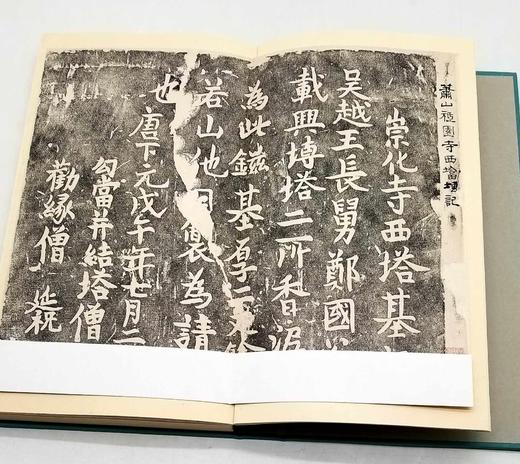 蕭山祗園寺西塔塔記
崇化寺西塔基
吳越王長舅鄭國
載興塼塔二所香泥
為此鐵基厚二
若山他日製為請
也
唐下元戊午年七月二
勾當并結塔僧
勸緣僧 延祝